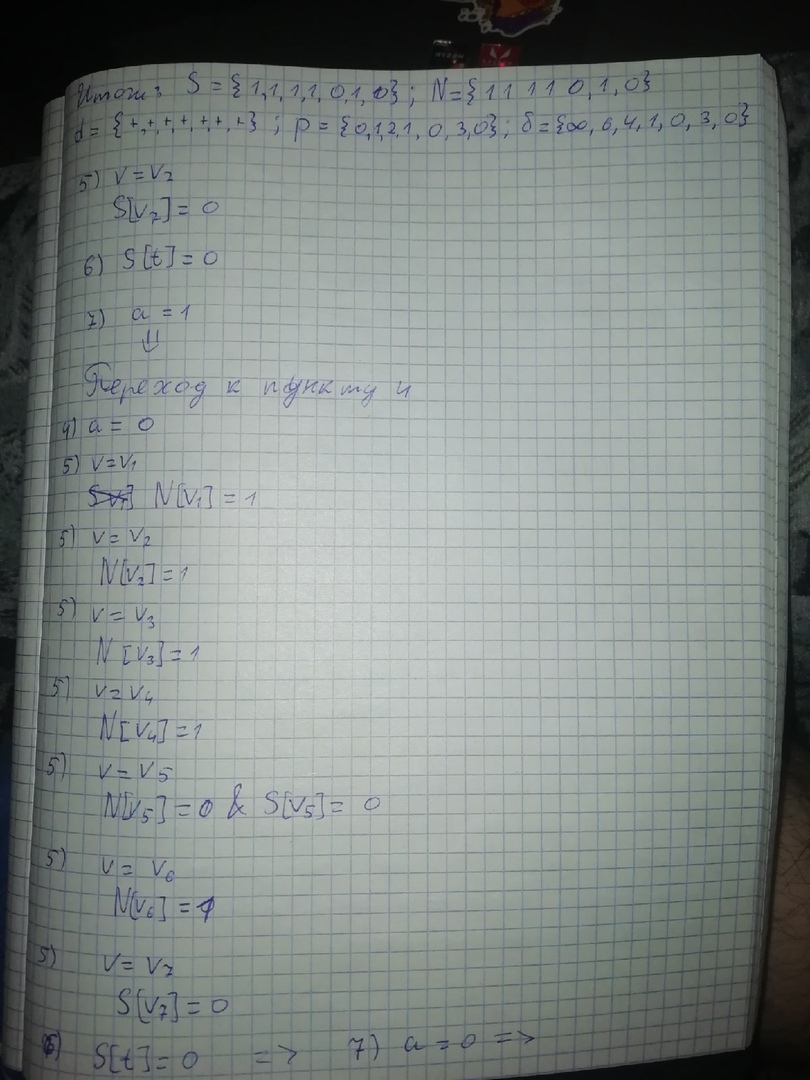 Итог: S = {1,1,1,1,0,1,0}; N={1 1 1 1 0,1,0}
d = {+,+,+,+,+,+,+}; p = {0,1,2,1,0,3,0}; δ={∞,6,4,1,0,3,0}
5) v=v₇
S[v₇]= 0
6) S[t]=0
7) a = 1
⇓
Переход к пункту 4
4) a = 0
5) v=v₁
N[v₁]=1
5) v= v₂
N[v₂]=1
5) v= v₃
N[v₃]=1
5) v=v₄
N[v₄]=1
5) v=v₅
N[v₅]=0 & S[v₅]= 0
5) v= v₆
N[v₆]=1
5) v= v₇
S[v₇]=0
6) S[t]=0 => 7) a=0 =>